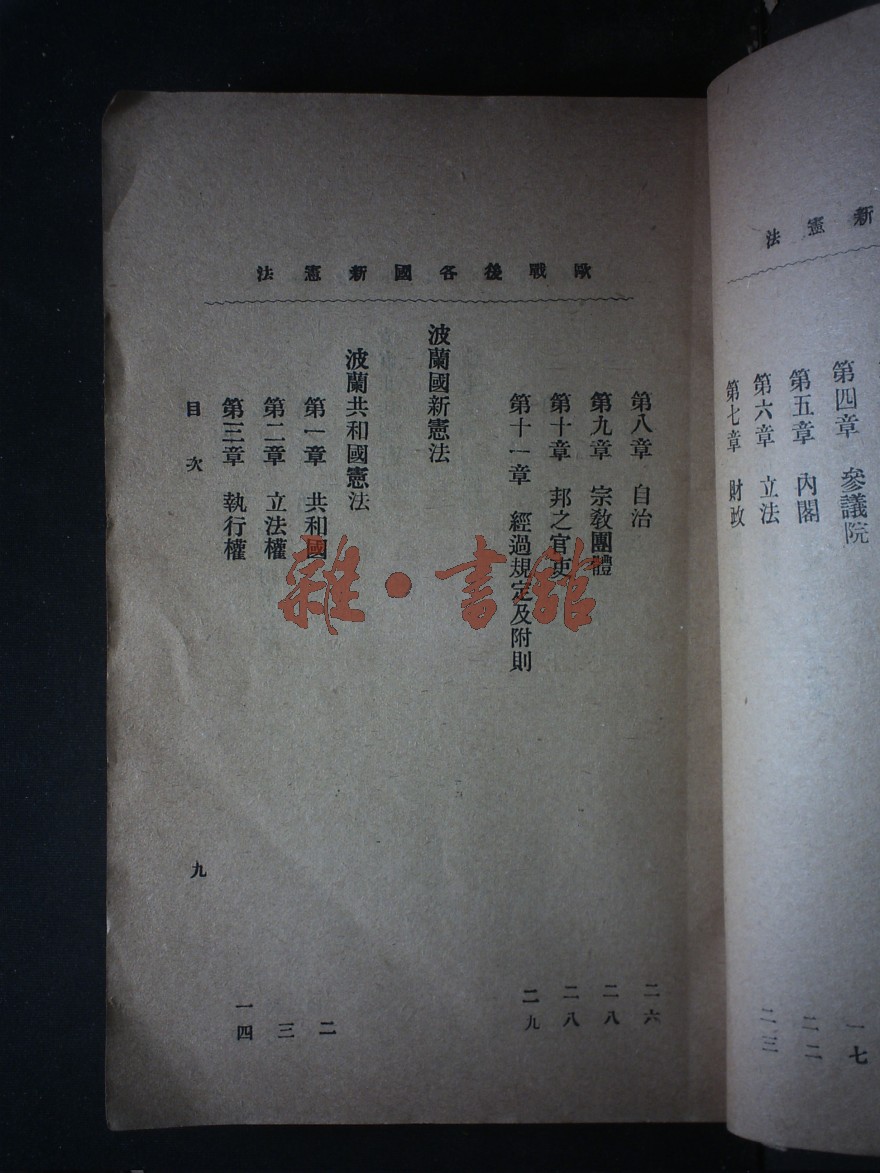 新憲法
第四章 參議院 一七
第五章 內閣 二二
第六章 立法 二三
第七章 財政
歐戰後各國新憲法
第八章 自治 二六
第九章 宗教團體 二八
第十章 邦之官吏 二八
第十一章 經過規定及附則 二九
波蘭國新憲法
波蘭共和國憲法
第一章 共和國 二
第二章 立法權 三
第三章 執行權 一四
目次 九
雜·書館